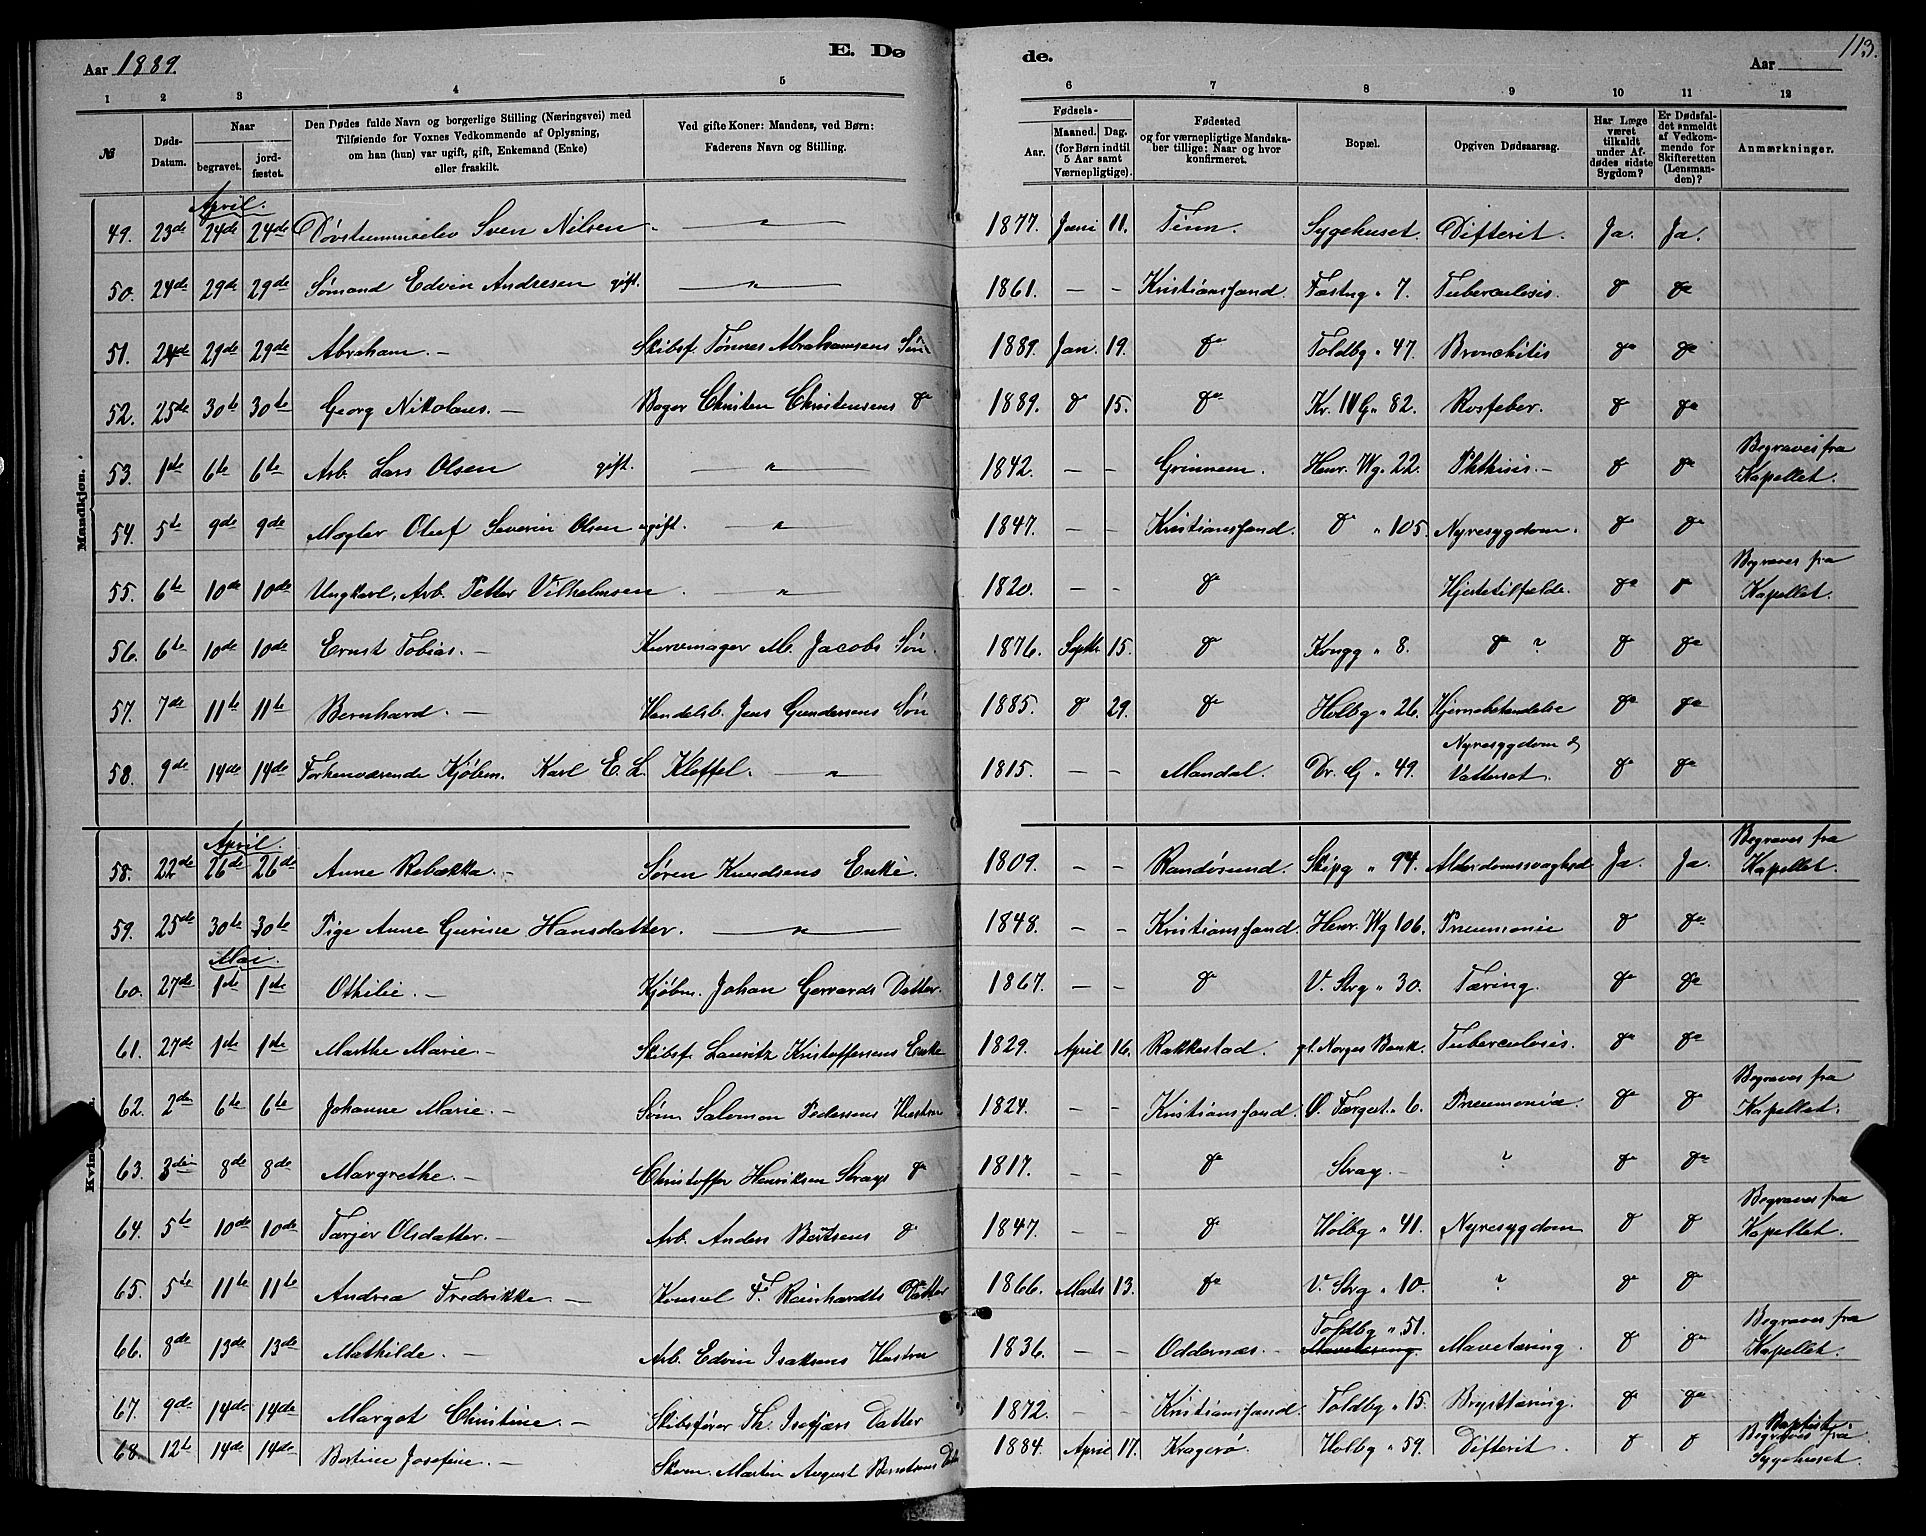 Aar 1889. E. Dø de. Aar 113.
1 2 3 4 5 6 7 8 9 10 11 12
№ Døds-Datum. Naar begravet. jord-fæstet. Den Dødes fulde Navn og borgerlige Stilling (Næringsvei) med Tilføiende for Voxnes Vedkommende af Oplysning, om han (hun) var ugift, gift, Enkemand (Enke) eller fraskilt. Ved gifte Koner: Mandens, ved Børn: Faderens Navn og Stilling. Fødsels- Aar. Maaned. Dag. (for Børn indtil 5 Aar samt Værnepligtige). Fødested og for værnepligtige Mandskaber tillige: Naar og hvor konfirmeret. Bopæl. Opgiven Dødsaarsag. Har Læge været tilkaldt under Afdødes sidste Sygdom? Er Dødsfaldet anmeldt af Vedkommende for Skifteretten (Lensmanden)? Anmærkninger.
Mandkjøn.
April.
49. 23de 24de 24de Døvstummeelev Sven Nilsen. — " — 1877. Juni 11. Tinn. Sygehuset. Difterit. Ja. Ja.
50. 24de 29de 29de Sømand Edvin Andresen gift. — " — 1861. — — Kristianssand. Fæstng " 7. Tuberculosis. do do
51. 24de 29de 29de Abraham. — Skibsf. Tønnes Abrahamsens Søn 1889. Jan. 19. do Toldbg " 47. Bronchitis do do
52. 25de 30te 30te Georg Nikolaus. — Bager Christen Christensens do 1889. do 15. do Kr. IV G. 82. Rosfeber. do do
53. 1ste 6te 6te Arb. Lars Olsen gift. — " — 1842. — — Grimnem. Henr. Wg. 22. Phthisis. — do do Begraves fra Kapellet.
54. 5te 9de 9de Mægler Oluf Severin Olsen gift. — " — 1847. — — Kristianssand. do " 105. Nyresygdom. do do
55. 6te 10de 10de Ungkarl, Arb. Petter Vilhelmsen. — " — 1820. — — do Hjertetilfælde. do do Begraves fra Kapellet.
56. 6te 10de 10de Ernst Tobias. — Kurvmager M. Jacobs Søn. 1876. Septbr. 15. do Kongg " 8. do ? do do
57. 7de 11te 11te Bernhard. — Handelsb. Jens Gundersens Søn 1885. do 29. do Holbg " 26. Hjernebetændelse do do
58. 9de 14de 14de Forhenværende Kjøbm. Karl E. L. Kleffel. — " — 1815. — — Mandal. Dr. G " 49. Nyresygdom & Vattersot. do do
Kvindekjøn.
April.
58. 22de 26de 26de Anne Rebækka. — Søren Knudsens Enke. 1809. — — Randøsund. Skipg " 94. Alderdomssvaghed Ja. Ja. Begraves fra Kapellet.
59. 25de 30te 30te Pige Anne Gurine Hansdatter. — " — 1848. — — Kristianssand. Henr. Wg 106. Pneumonie do do
Mai.
60. 27de 1ste 1ste Othilie. — Kjøbm. Johan Gerrards Datter. 1867. — — do V. Strg " 30. Tæring. do do
61. 27de 1ste 1ste Marthe Marie. — Skibsf. Lauritz Kristoffersens Enke 1829. April 16. Rakkestad. gl. Norges Bank. Tuberculosis. do do
62. 2de 6te 6te Johanne Marie. — Søm. Salomon Pedersens Hustru 1824. — — Kristianssand. Ø. Færgest. " 6. Pneumonia. do do Begraves fra Kapellet.
63. 3die 8de 8de Margrethe. — Christoffer Henriksen Strays do 1817. — — do Stray. — ? do do
64. 5te 10de 10de Tarjer Olsdatter. — Arb. Anders Bertsens do 1847. — — do Holbg " 41. Nyresygdom do do Begraves fra Kapellet.
65. 5te 11te 11te Andrea Fredrikke. — Konsul F. Reinhardts Datter 1866. Marts 13. do V. Strg " 10. ? do do
66. 8de 13de 13de Mathilde. — Arb. Edvin Isaksens Hustru 1836. — — Oddernæs. — Toldbg " 51. Mavetæring. Mavetæring. do do Begraves fra Kapellet.
67. 9de 14de 14de Margot Christine. — Skibsfører Th. Isefjærs Datter 1872. — — Kristianssand. Toldbg " 15. Brysttæring. do do
68. 12te 14de 14de Bertine Josefine. — Skom. Martin August Berntsens Dat. 1884. April 17. Kragerø. Holbg " 59. Difterit. do do Baptist. Begraves fra Sygehuset.